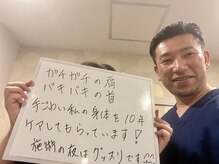 ガチガチの肩
バキバキの首
手ごわい私の身体を10年
ケアしてもらっています!
施術の夜はグッスリです